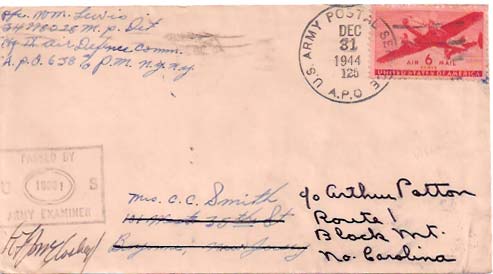 Pfc. Wm. Lewis
34998028 M.P. Det
Air Defense Comm.
A.P.O. 638 % P.M. N.Y. N.Y.
U.S. ARMY POSTAL SERVICE
DEC
31
1944
125
A.P.O.
AIR 6 MAIL
CENTS
UNITED STATES OF AMERICA
PASSED BY
U S
ARMY EXAMINER
Mrs. C. C. Smith
West 35th St
Bayonne, New Jersey
c/o Arthur Patton
Route 1
Black Mt.
No. Carolina